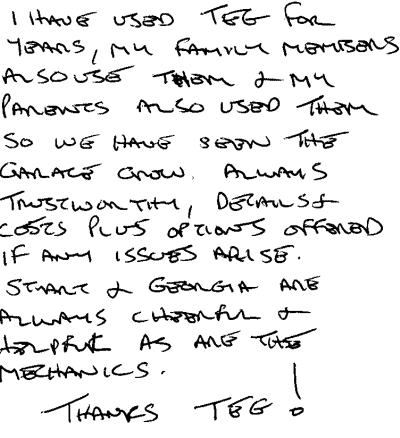 I HAVE USED TEG FOR
YEARS, MY FAMILY MEMBERS
ALSO USE THEM & MY
PARENTS ALSO USED THEM
SO WE HAVE SEEN THE
GARAGE GROW. ALWAYS
TRUSTWORTHY, DETAILS &
COSTS PLUS OPTIONS OFFERED
IF ANY ISSUES ARISE.
STUART & GEORGIA ARE
ALWAYS CHEERFUL &
HELPFUL AS ARE THE
MECHANICS.
THANKS TEG!